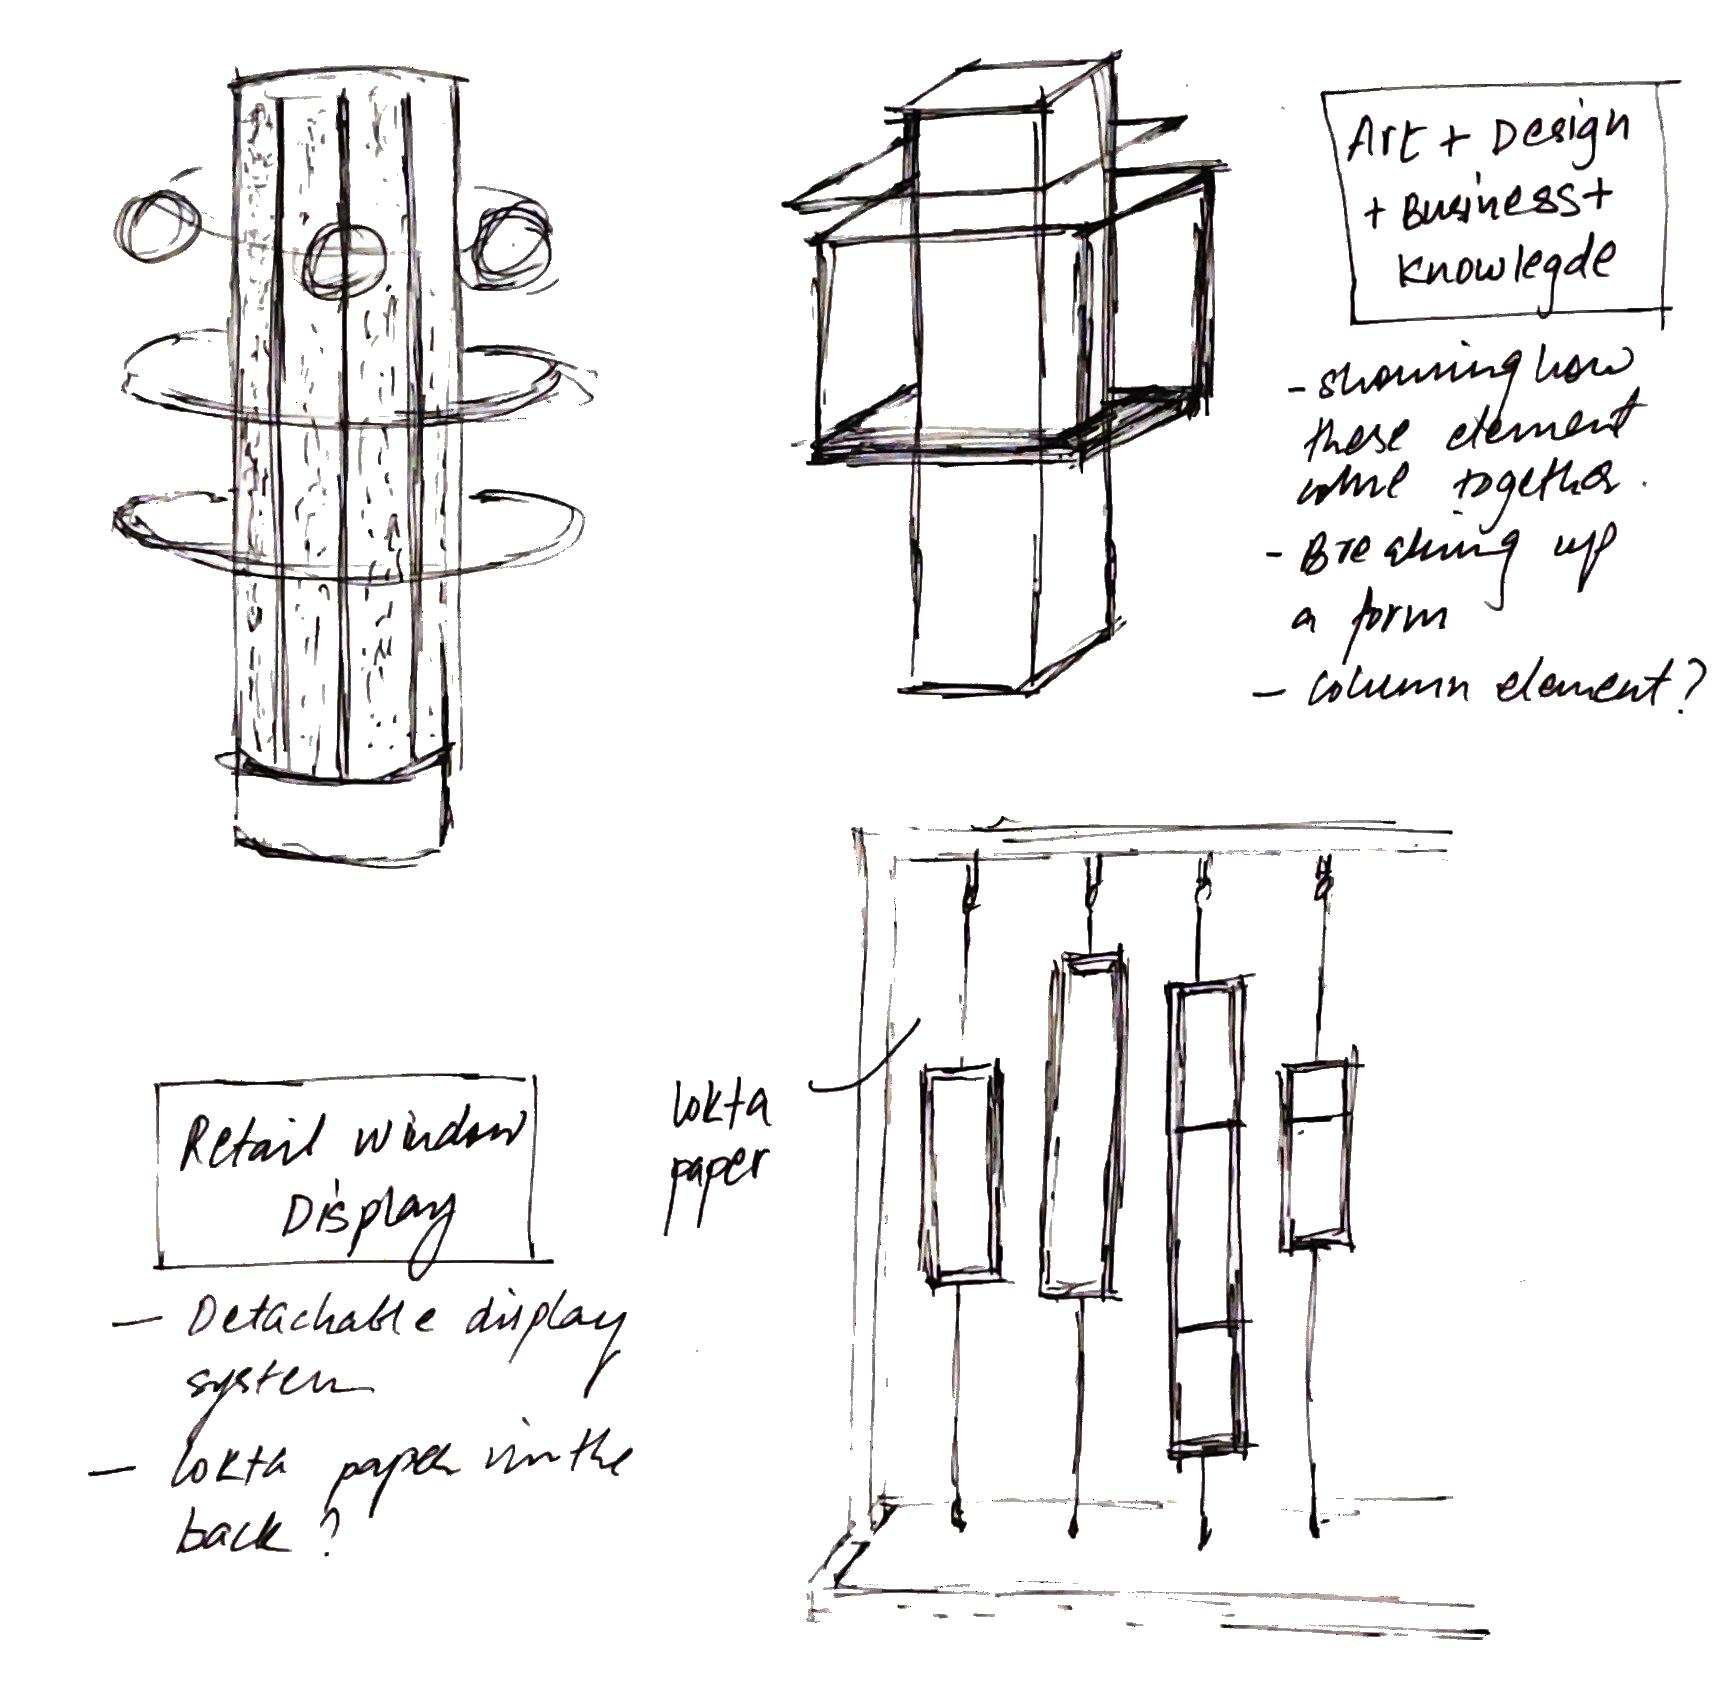 Art + Design
+ Business +
Knowlegde
- showing how
these element
come together.
- Breaking up
a form
- column element?
lokta
paper
Retail window
Display
- Detachable display
system
- lokta paper in the
back?